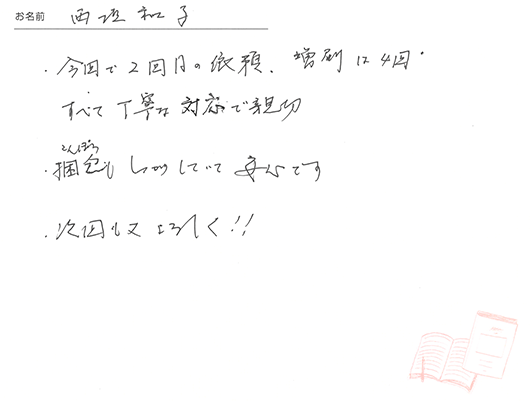 お名前 西垣和子
・今回で2回目の依頼、増刷は4回・
すべて丁寧な対応で親切
こんぽう
・梱包もしっかりしていて安心です
・次回も又よろしく!!